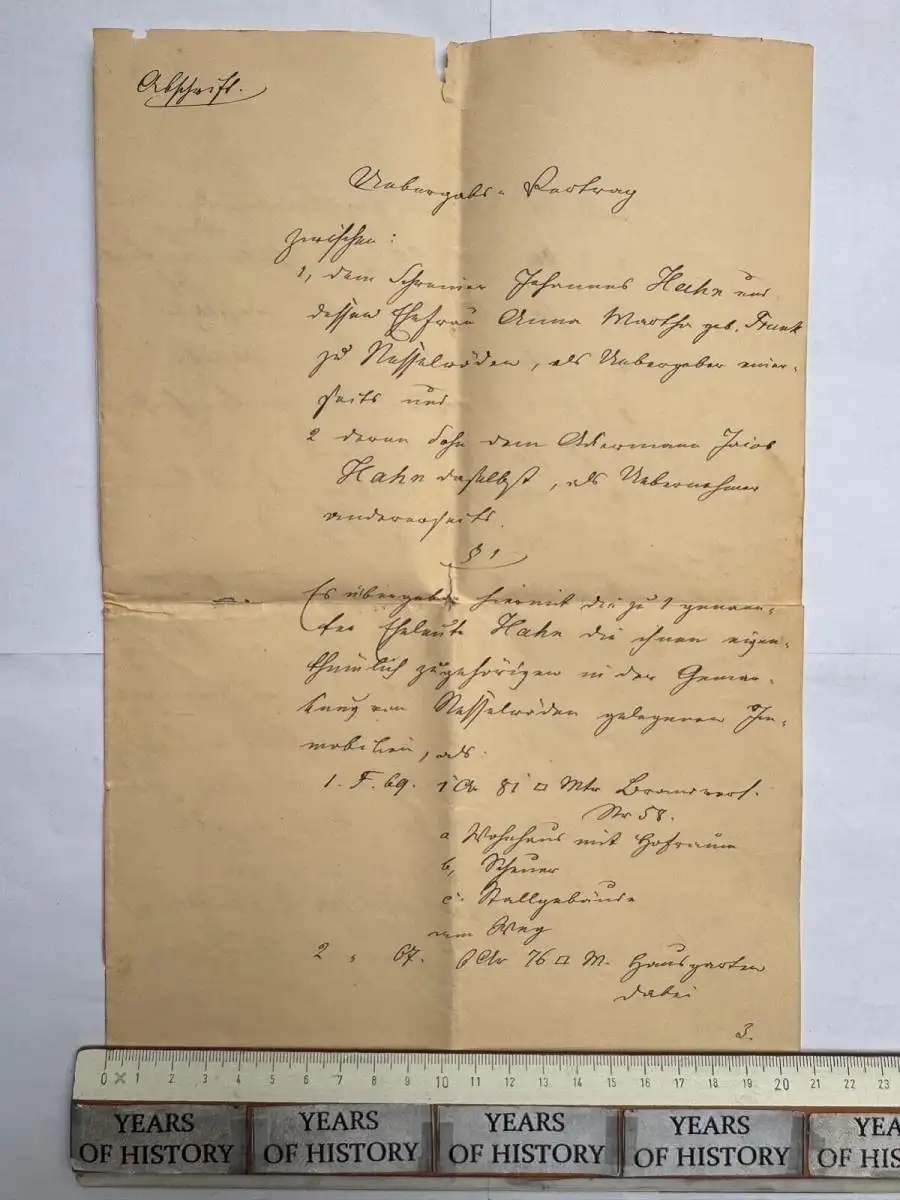 Abschrift.
Uebergabs-Vertrag
zwischen:
1, dem Schreiner Johannes Hahn und
dessen Ehefrau Anna Martha geb. Frank
zu Nesselröden, als Uebergeber einer-
seits und
2 deren Sohn dem Ackermann
Hahn daselbst, als Uebernehmer
andererseits.
§ 1
Es übergeben hiermit die zu 1 genann-
ten Eheleute Hahn die ihnen eigen-
thümlich zugehörigen in der Gemar-
kung von Nesselröden gelegenen Im-
mobilien, als:
1. F. 69. 1 Ar 81 □ Mtr Brandvers.
Nr 58.
a Wohnhaus mit Hofraum
b, Scheuer
c. Stallgebäude
am Weg
2 " 67. 6 Ar 76 □ M. Hausgarten
dabei
3.
0 1 2 3 4 5 6 7 8 9 10 11 12 13 14 15 16 17 18 19 20 21 22 23
YEARS OF HISTORY
YEARS OF HISTORY
YEARS OF HISTORY
YEARS OF HISTORY
YEA
OF HIS